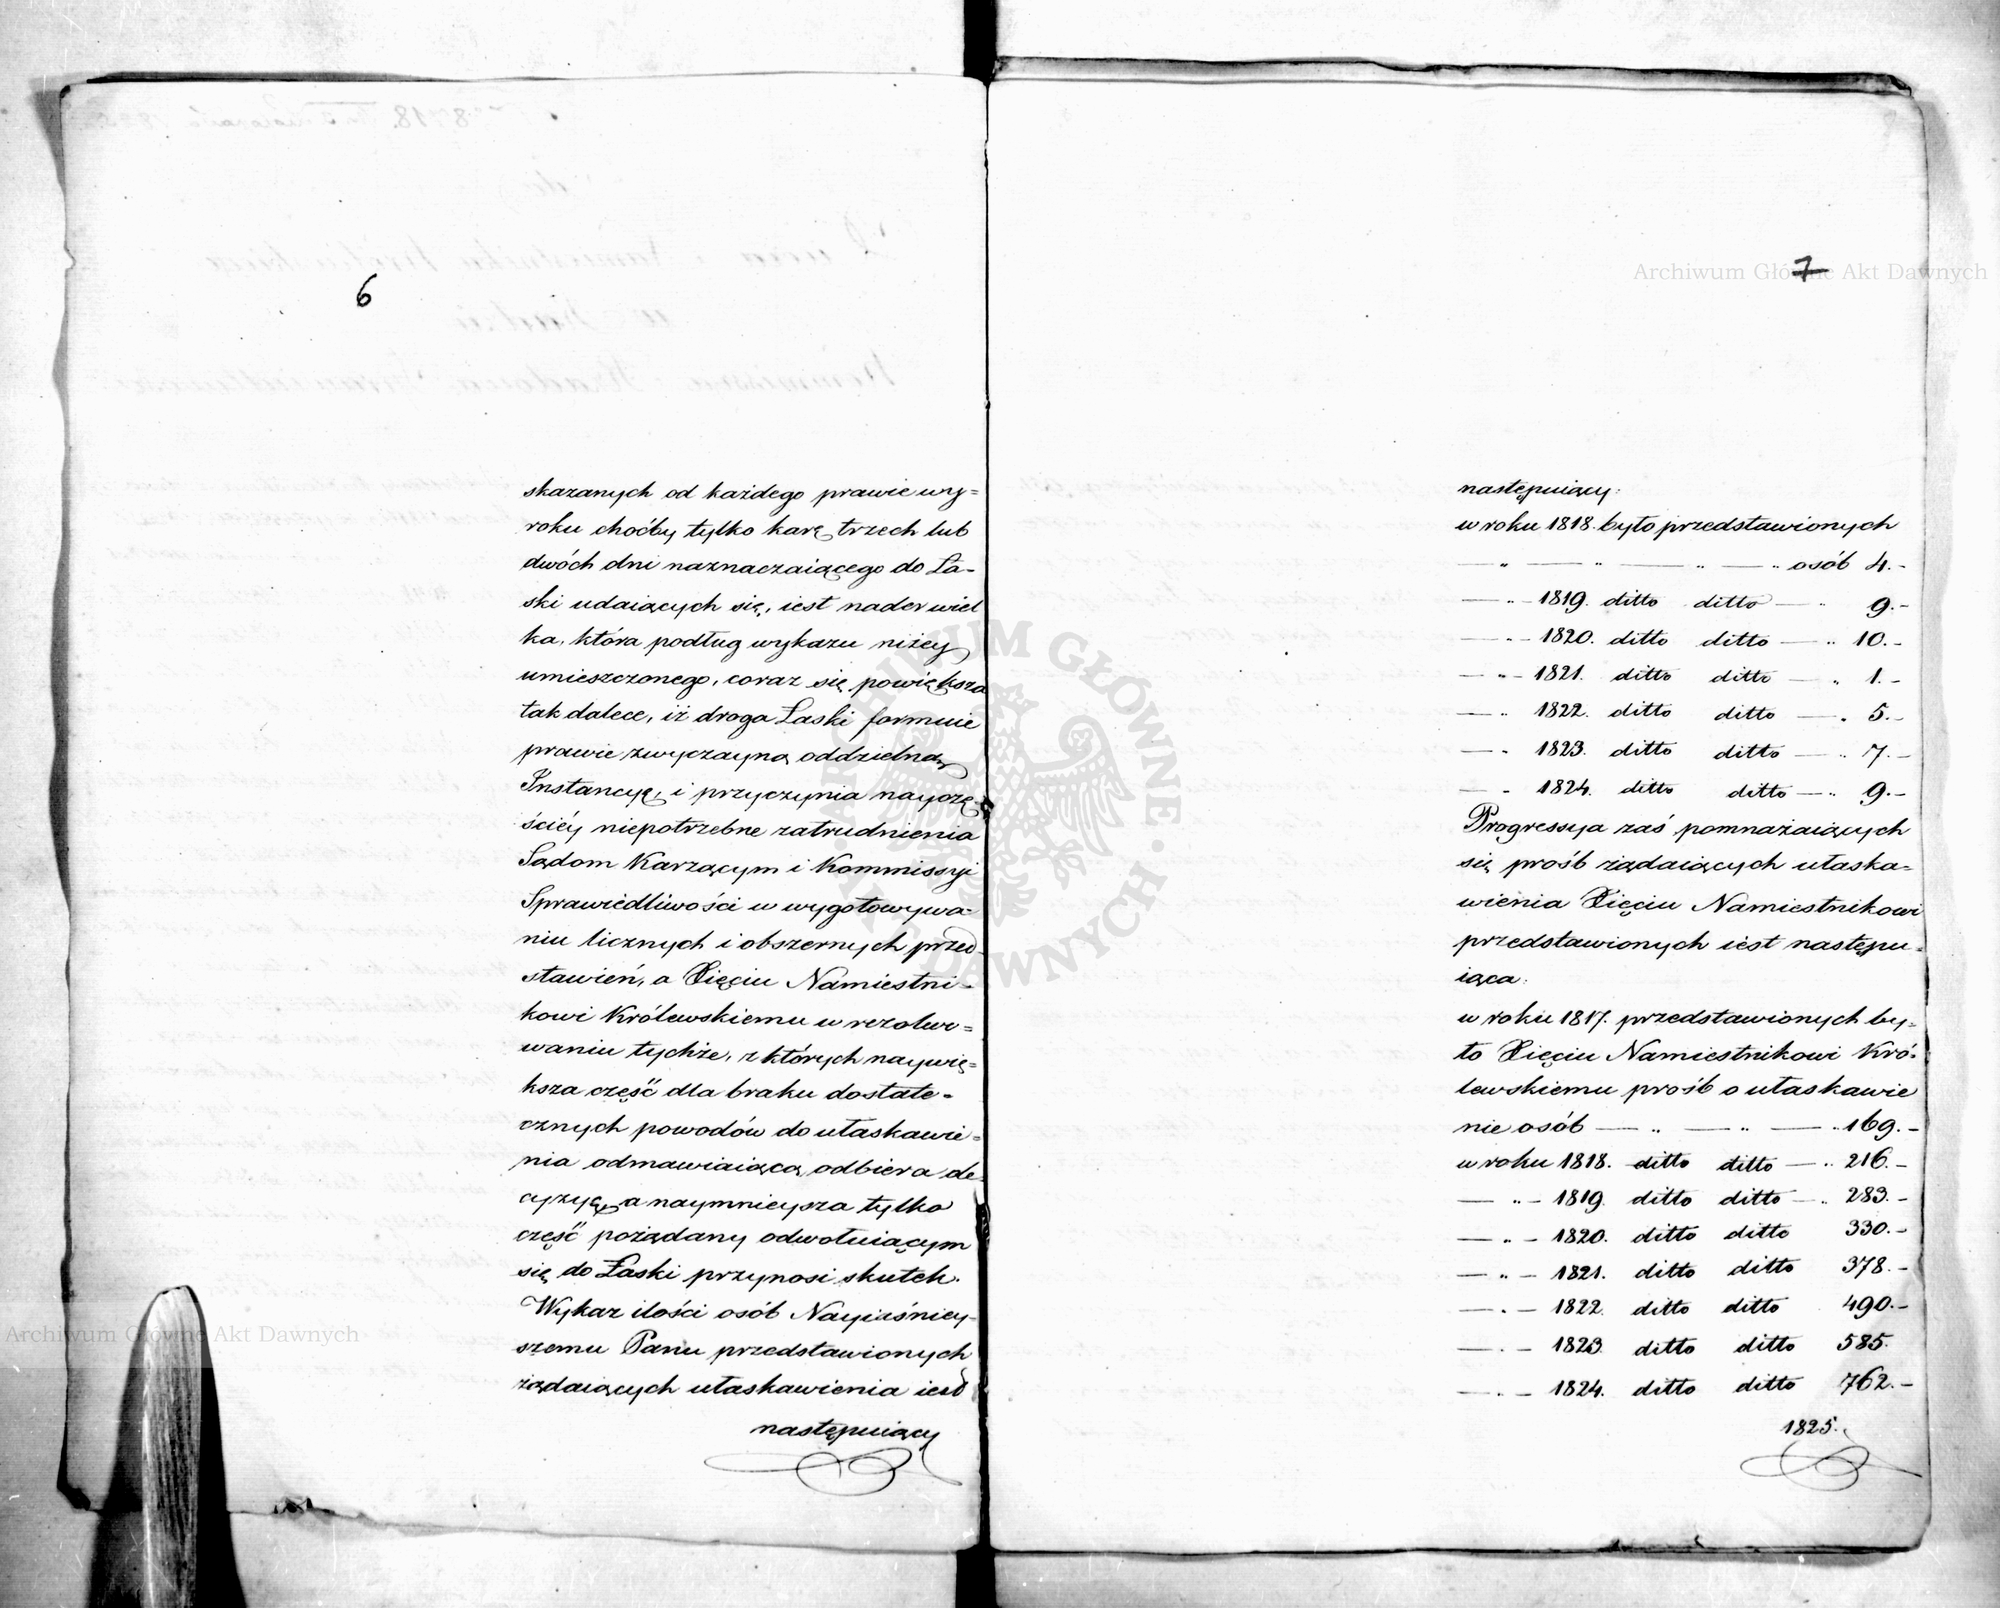 6
skazanych od każdego prawie wy=
roku choćby tylko karę trzech lub
dwóch dni naznaczaiącego do Ła-
ski udaiących się, iest nader wiel
ka, która podług wykazu niżey
umieszczonego, coraz się powiększa
tak dalece, iż droga Łaski formuie
prawie zwyczayną oddzielną
Instancyę, i przyczynia nayczę-
ściéy niepotrzebne zatrudnienia
Sądom Karzącym i Kommissyi
Sprawiedliwości w wygotowywa-
niu licznych i obszernych przed-
stawień, a Xięciu Namiestni-
kowi Królewskiemu w rezolwo=
waniu tychże, z których naywię=
ksza część dla braku dostate=
cznych powodów do ułaskawie=
nia odmawiaiącą odbiera de-
cyzyę, a naymnieysza tylko
część pożądany odwołuiącym
się do Łaski przynosi skutek.
Wykaz ilości osób Nayiaśniey-
szemu Panu przedstawionych
żądaiących ułaskawienia iest
następuiący
7
następuiący:
w roku 1818. było przedstawionych
— " — " — " — " osób 4.-
— " - 1819. ditto ditto — " 9.-
— " - 1820. ditto ditto — " 10.-
— " - 1821. ditto ditto — " 1.-
— " 1822. ditto ditto — " 5.-
— " 1823. ditto ditto — " 7.-
— " 1824. ditto ditto — " 9.-
Progressya zaś pomnażaiących
się prośb żądaiących ułaska=
wienia Xięciu Namiestnikowi
przedstawionych iest następu=
iąca:
w roku 1817. przedstawionych by-
ło Xięciu Namiestnikowi Kró-
lewskiemu prośb o ułaskawie
nie osób — " — " — " 169.-
w roku 1818. ditto ditto — " 216.-
— " - 1819. ditto ditto — " 283.-
— " - 1820. ditto ditto 330.-
— " - 1821. ditto ditto 378.-
— " - 1822. ditto ditto 490.-
— " - 1823. ditto ditto 585.
— " - 1824. ditto ditto 762.-
1825.
Archiwum Główne Akt Dawnych
Archiwum Główne Akt Dawnych
ARCHIWUM GŁÓWNE · AKT DAWNYCH ·